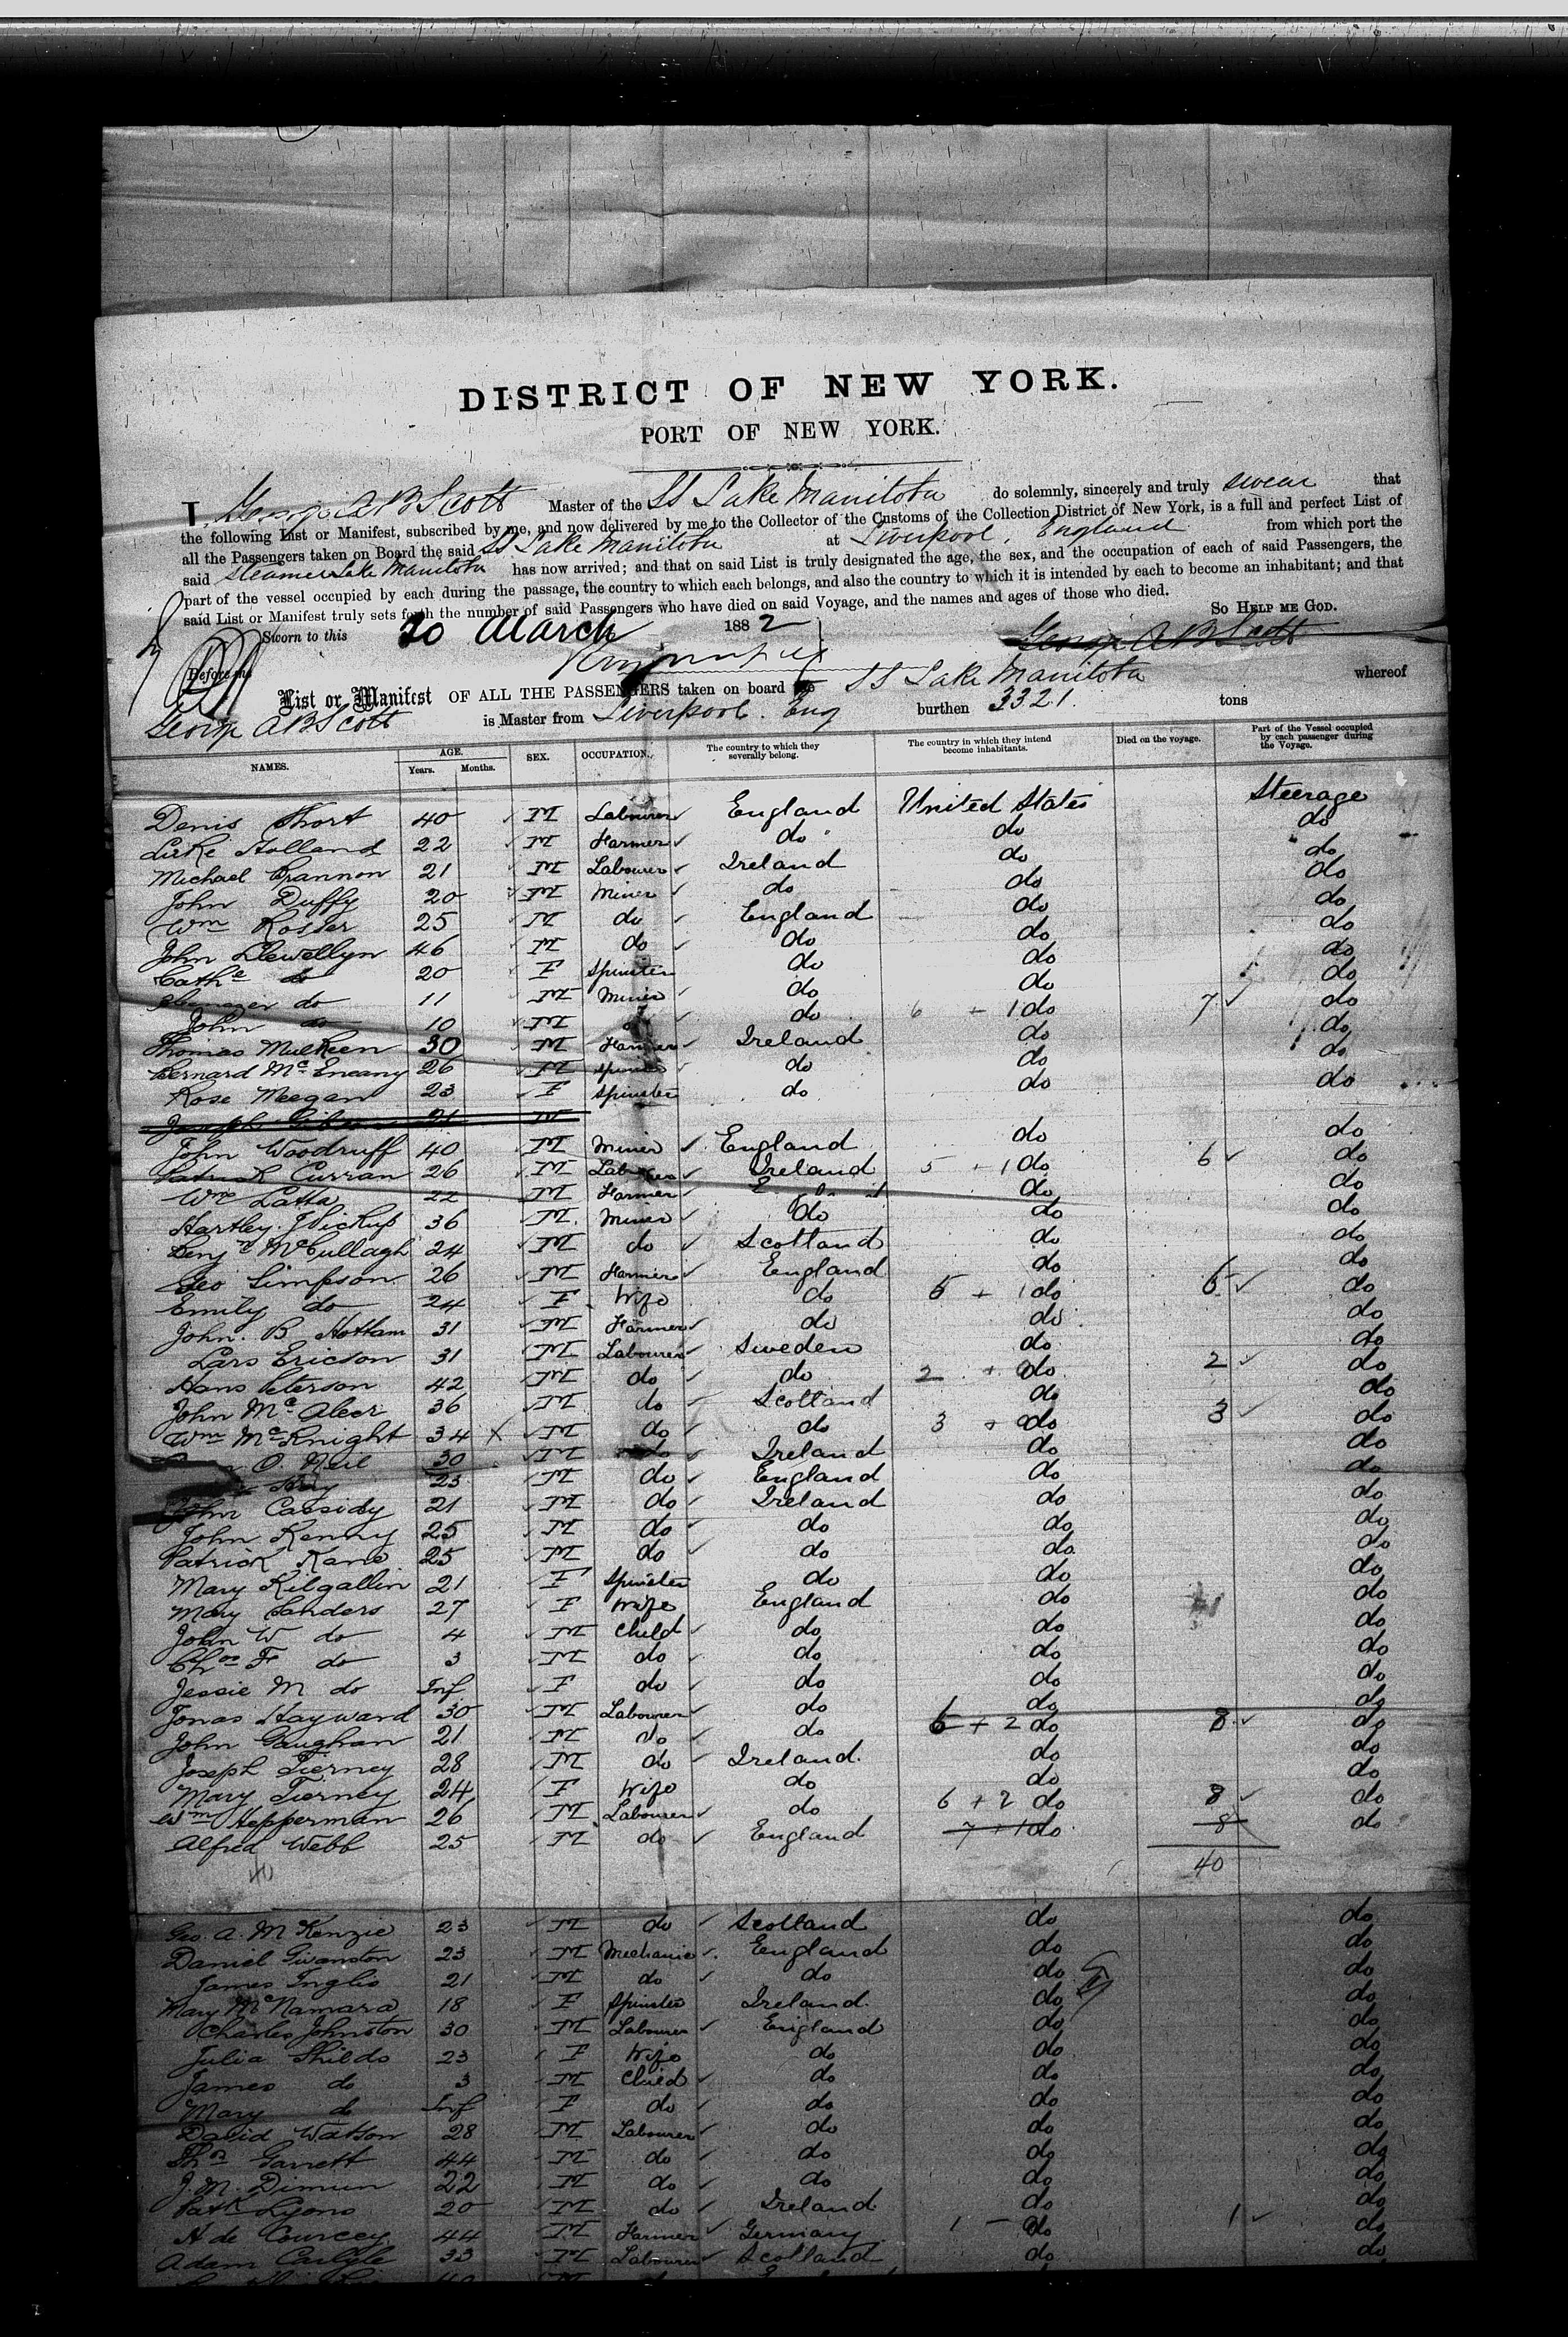 DISTRICT OF NEW YORK.
PORT OF NEW YORK.
I, George A B Scott Master of the SS Lake Manitoba do solemnly, sincerely and truly swear that
the following List or Manifest, subscribed by me, and now delivered by me to the Collector of the Customs of the Collection District of New York, is a full and perfect List of
all the Passengers taken on Board the said SS Lake Manitoba at Liverpool, England from which port the
said Steamer Lake Manitoba has now arrived; and that on said List is truly designated the age, the sex, and the occupation of each of said Passengers, the
part of the vessel occupied by each during the passage, the country to which each belongs, and also the country to which it is intended by each to become an inhabitant; and that
said List or Manifest truly sets forth the number of said Passengers who have died on said Voyage, and the names and ages of those who died.
So HELP ME GOD.
Sworn to this 20 March 1882
George A B Scott
Before me
List or Manifest OF ALL THE PASSENGERS taken on board the SS Lake Manitoba whereof
George A B Scott is Master from Liverpool. Eng burthen 3321. tons
NAMES. AGE. Years. Months. SEX. OCCUPATION. The country to which they severally belong. The country in which they intend become inhabitants. Died on the voyage. Part of the Vessel occupied by each passenger during the Voyage.
Denis Short 40 M Labourer England United States Steerage
Luke Holland 22 M Farmer do do do
Michael Brannon 21 M Labourer Ireland do do
John Duffy 20 M Miner do do do
Wm Rosser 25 M do England do do
John Llewellyn 46 M do do do do
Cathe do 20 F Spinster do do do
Ebenezer do 11 M Miner do do do
John do 10 M do 6 + 1 do 7 do
Thomas Mulkeen 30 M Farmer Ireland do do
Bernard McEneany 26 M do do do
Rose Meegan 23 F Spinster do do do
Joseph 21 M
John Woodruff 40 M Miner England do do
Patrick Curran 26 M Labourer Ireland 5 + 1 do 6 do
Wm Latta 22 M Farmer England do do
Hartley J Pickup 36 M Miner do do do
Benjn McCullagh 24 M do Scotland do do
Geo Simpson 26 M Farmer England do do
Emily do 24 F Wife do 5 + 1 do 6 do
John. B Hottam 31 M Farmer do do do
Lars Ericson 31 M Labourer Sweden do do
Hans Peterson 42 M do do 2 + 0 do 2 do
John McAleer 36 M do Scotland do do
Wm McKnight 34 X M do do 3 + 0 do 3 do
O. Neil 30 M do Ireland do do
23 M do England do do
John Cassidy 21 M do Ireland do do
John Kenny 25 M do do do do
Patrick Kane 25 M do do do do
Mary Kilgallin 21 F Spinster do do do
Mary Sanders 27 F Wife England do do
John W do 4 M Child do do do
Chas F do 3 M do do do do
Jessie M do Inf F do do do do
Jonas Hayward 30 M Labourer do do do
John Gaughan 21 M do do 6 + 2 do 8 do
Joseph Tierney 28 M do Ireland. do do
Mary Tierney 24 F Wife do do do
Wm Hepperman 26 M Labourer do 6 + 2 do 8 do
Alfred Webb 25 M do England 7 + 1 do 8 do
40 40
Geo. A. McKenzie 23 M do Scotland do do
Daniel Swanston 23 M Mechanic England do do
James Inglis 21 M do do do do
Mary McNamara 18 F Spinster Ireland. do do
Charles Johnston 30 M Labourer England do do
Julia Shilds 23 F Wife do do do
James do 3 M Child do do do
Mary do Inf F do do do do
David Watson 28 M Labourer do do do
Thos Garrett 44 M do do do do
J. M. Dimun 22 M do do do do
Patk Lyons 20 M do Ireland do do
A de Courcey 44 M Farmer Germany 1 - 0 do 1 do
Adam Carlyle 33 M Labourer Scotland do do